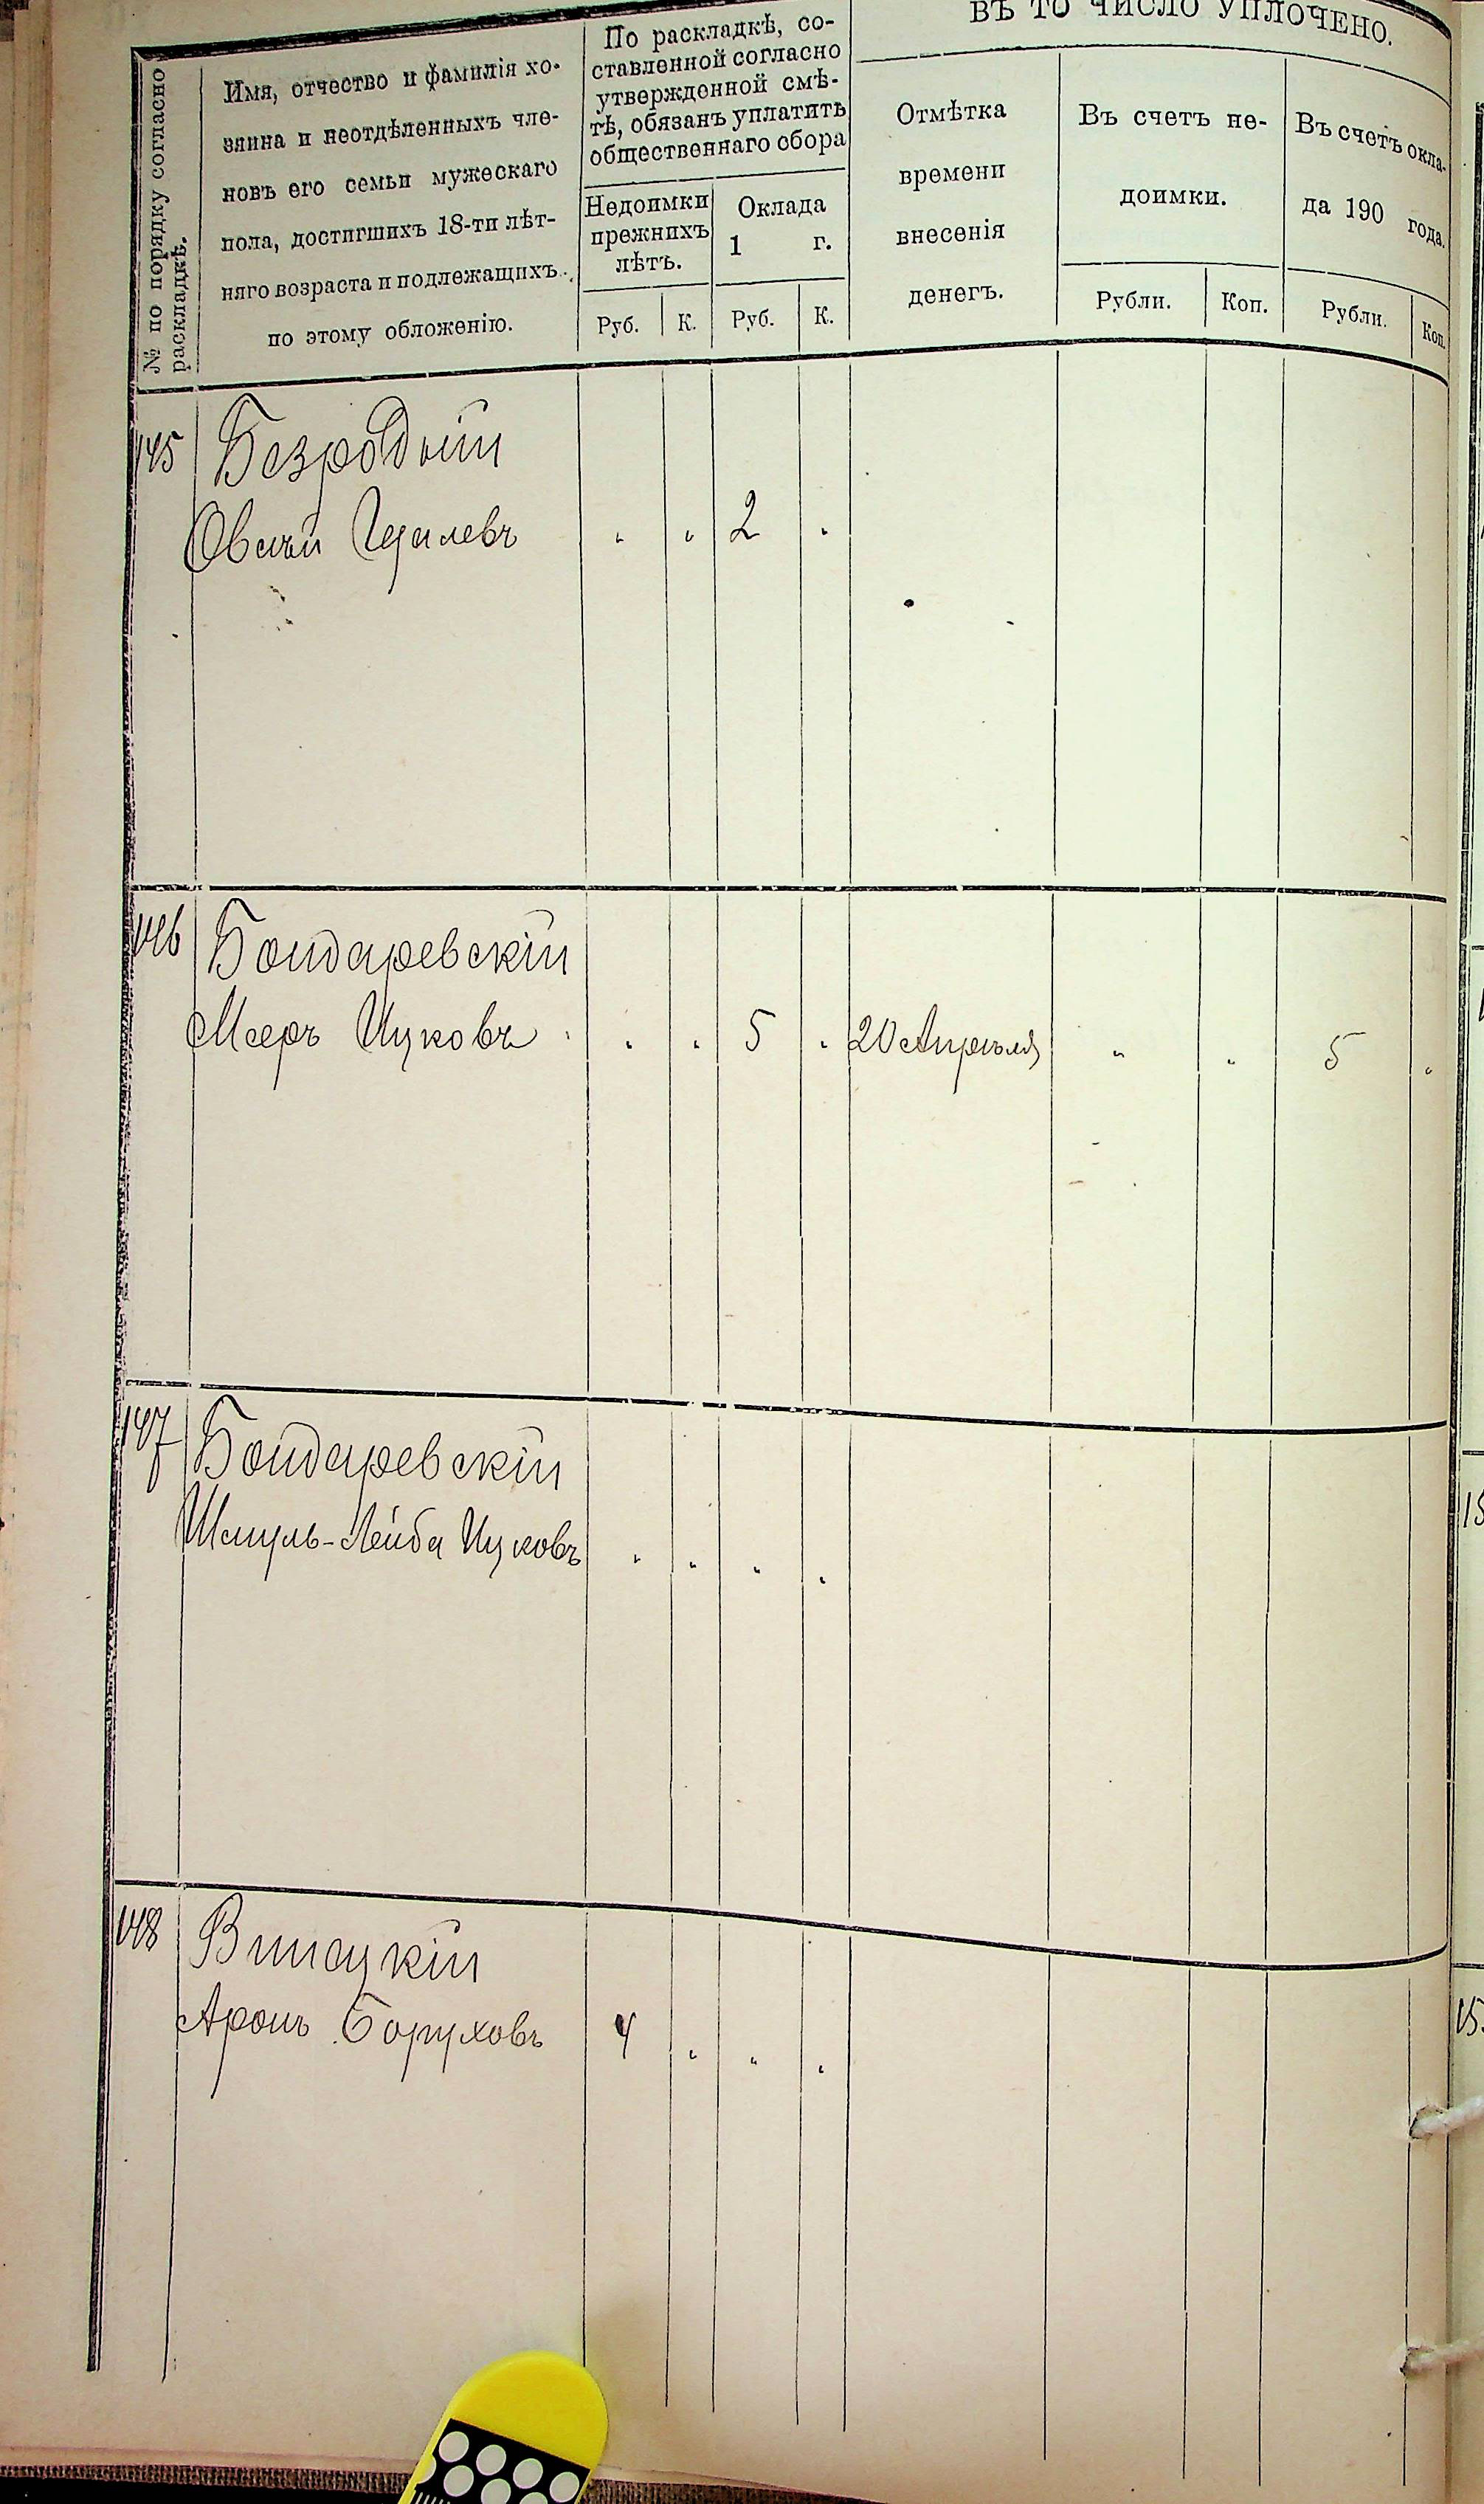 ВЪ ТО ЧИСЛО УПЛОЧЕНО.
№ по порядку согласно
раскладкѣ.
Имя, отчество и фамилія хо-
зяина и неотдѣленныхъ чле-
новъ его семьи мужескаго
пола, достигшихъ 18-ти лѣт-
няго возраста и подлежащихъ
по этому обложенію.
По раскладкѣ, со-
ставленной согласно
утвержденной смѣ-
тѣ, обязанъ уплатить
общественнаго сбора
Недоимки
прежнихъ
лѣтъ.
Оклада
1 г.
Руб. К. Руб. К.
Отмѣтка
времени
внесенія
денегъ.
Въ счетъ не-
доимки.
Рубли. Коп.
Въ счетъ окла-
да 190 года.
Рубли. Коп.
145 Безродный
Овсѣй 2
146 Бондаревскій
Мееръ Ицковъ " " 5 " 20 Апрѣля " " 5 "
147 Бондаревскій
Шмуль-Лейба Ицковъ " " " "
148 Винацкій
Аронъ Боруховъ 4 " " "